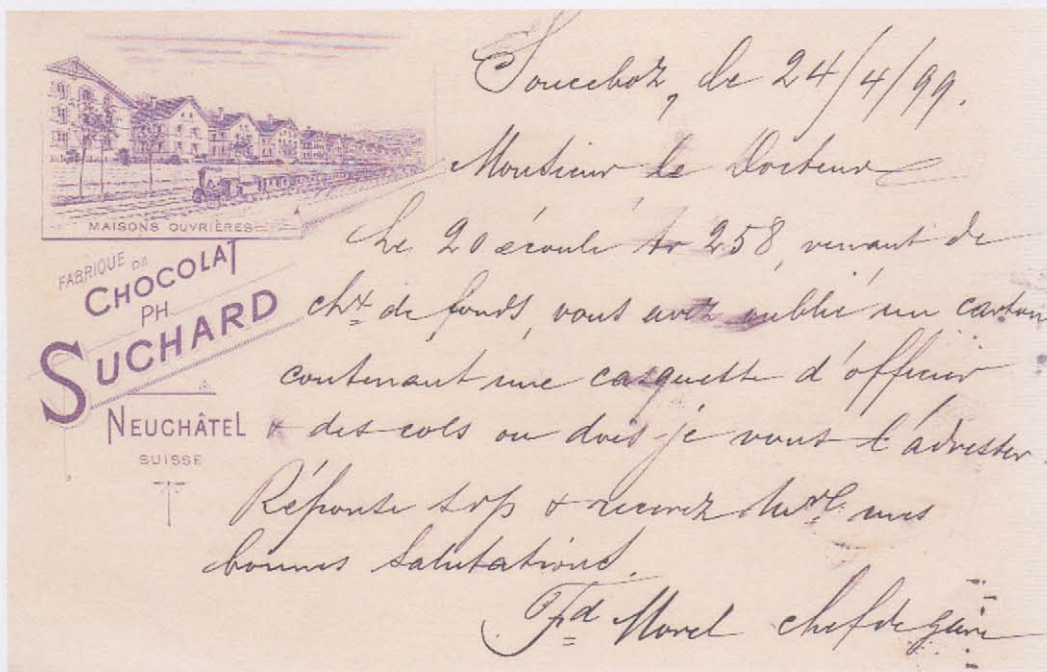 MAISONS OUVRIÈRES
FABRIQUE DE
CHOCOLAT
PH.
SUCHARD
NEUCHÂTEL
SUISSE
Sonceboz, le 24/4/99.
Monsieur le Docteur
Le 20 écoulé tr 258, venant de
chx de fonds, vous avez oublié un carton
contenant une casquette d'officier
& des cols ou dois-je vous l'adresser.
Réponse svp & recevez mes
bonnes salutations.
Fd Morel chef de gare